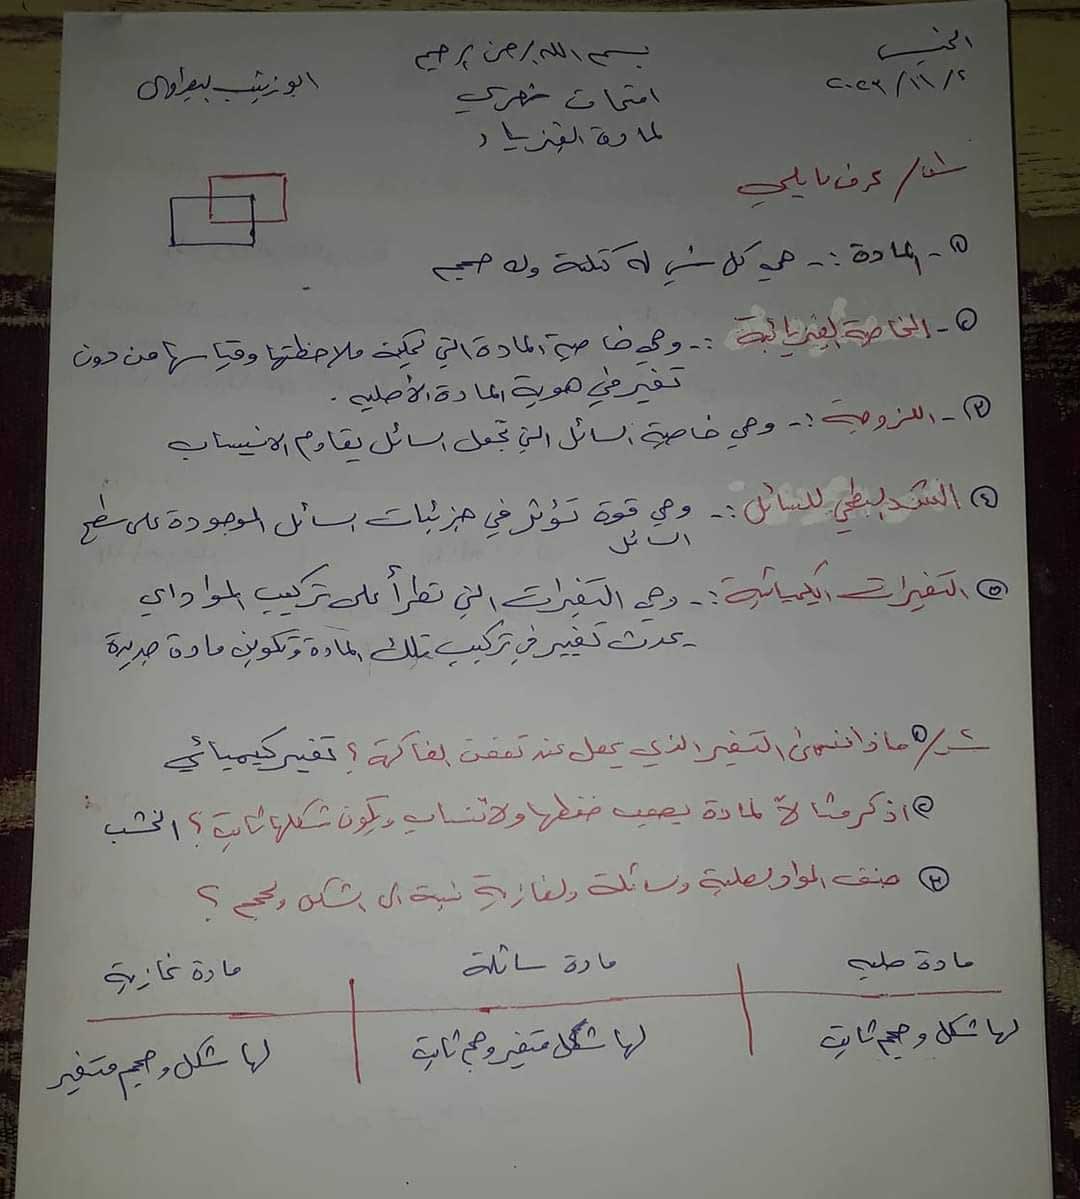 الخميس
بسم الله الرحمن الرحيم
٢٠٢٣/١١/٢
امتحان شهري
لمادة الفيزياء
س١/ عرف مايلي
١- المادة :- هي كل شي له كتلة وله حجم
٢- الخاصة الفيزيائية :- وهي خاصية المادة التي يمكن ملاحظتها وقياسها من دون
تغير في هوية المادة الأصليه .
٣- اللزوجة :- وهي خاصية السائل التي تجعل السائل يقاوم الانسياب
٤ الشد السطحي للسائل :- وهي قوة تؤثر في جزيئات السائل الموجودة على سطح
السائل
٥ التغيرات الكيميائية :- وهي التغيرات التي تطرأ على تركيب المواد اي
يحدث تغيير في تركيب تلك المادة وتكوين مادة جديدة
س٢/ ١ ماذا نسمي التغير الذي يحصل عند تعفن الفاكهة ؟ تغير كيميائي
٢ اذكر مثالاً لمادة يصعب ضغطها ولا تنساب ويكون شكلها ثابت ؟ الخشب
٣ صنف المواد الصلبة وسائلة والغازية نسبة الى الشكل والحجم ؟
مادة صلبه مادة سائلة مادة غازية
لها شكل وحجم ثابت لها شكل متغير وحجم ثابت لها شكل وحجم متغير